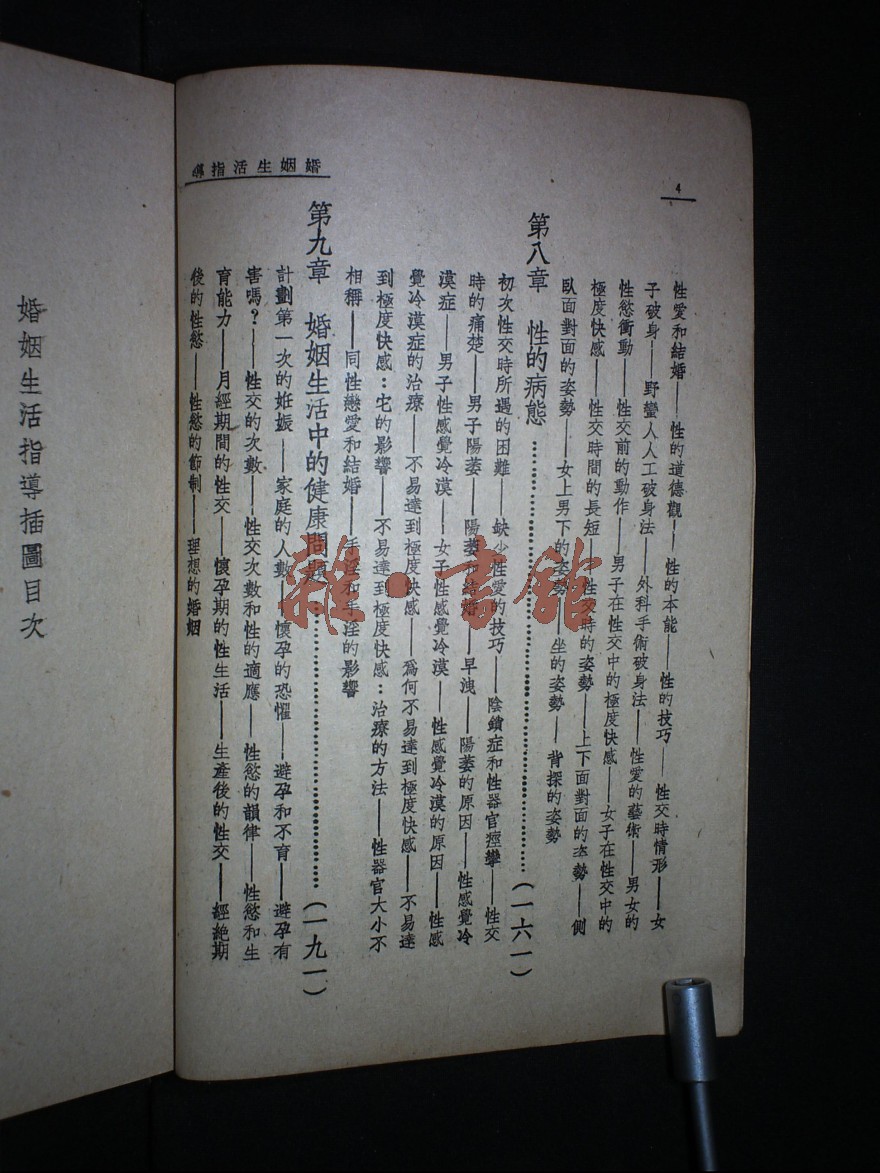 4
婚姻生活指導
性愛和結婚——性的道德觀——性的本能——性的技巧——性交時情形——女
子破身——野蠻人人工破身法——外科手術破身法——性愛的藝術——男女的
性慾衝動——性交前的動作——男子在性交中的極度快感——女子在性交中的
極度快感——性交時間的長短——性交時的姿勢——上下面對面的姿勢——側
臥面對面的姿勢——女上男下的姿勢——坐的姿勢——背探的姿勢
第八章 性的病態…………………………(一六一)
初次性交時所遇的困難——缺少性愛的技巧——陰鎖症和性器官痙攣——性交
時的痛楚——男子陽萎——陽萎和結婚——早洩——陽萎的原因——性感覺冷
漠症——男子性感覺冷漠——女子性感覺冷漠——性感覺冷漠的原因——性感
覺冷漠症的治療——不易達到極度快感——爲何不易達到極度快感——不易達
到極度快感:它的影響——不易達到極度快感:治療的方法——性器官大小不
相稱——同性戀愛和結婚——手淫和手淫的影響
第九章 婚姻生活中的健康問題…………………………(一九一)
計劃第一次的妊娠——家庭的人數——懷孕的恐懼——避孕和不育——避孕有
害嗎?——性交的次數——性交次數和性的適應——性慾的韻律——性慾和生
育能力——月經期間的性交——懷孕期的性生活——生產後的性交——經絕期
後的性慾——性慾的節制——理想的婚姻
婚姻生活指導插圖目次
雜·書館